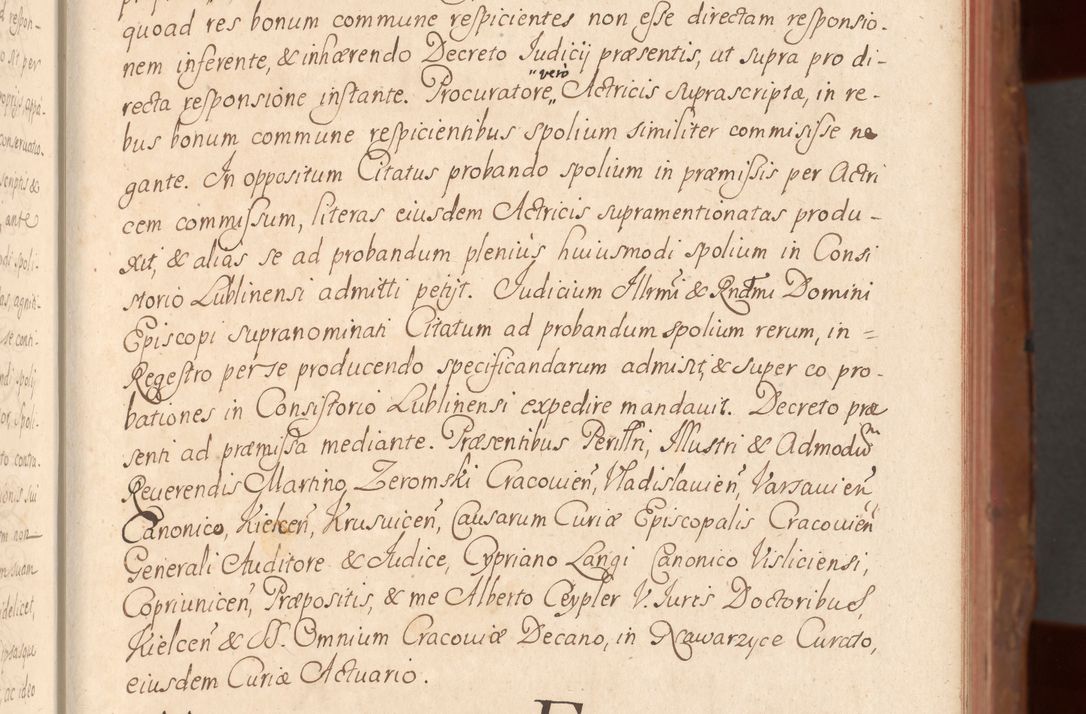 quoad res bonum commune respicientes non esse directam responsio-
nem inferente, & inhærendo Decreto Judicij præsentis, ut supra pro di-
recta responsione instante. Procuratore „verò„ Actricis suprascriptæ, in re-
bus bonum commune respicientibus spolium similiter commisisse ne
gante. In oppositum Citatus probando spolium in præmissis per Actri
cem commissum, literas eiusdem Actricis supramentionatas produ-
xit, & alias se ad probandum pleniùs huiusmodi spolium in Consi
storio Lublinensi admitti petijt. Judicium Illrmi & Rndmi Domini
Episcopi supranominati Citatum ad probandum spolium rerum, in =
Regestro per se producendo specificandarum admisit, & super eo pro-
bationes in Consistorio Lublinensi expedire mandauit. Decreto præ
senti ad præmissa mediante. Præsentibus Perillri, Illustri & Admodum
Reuerendis Martino, Zeromski Cracouien, Vladislauien, Varsauien
Canonico, Kielcen, Krusuicen, Causarum Curiæ Episcopalis Cracouien
Generali Auditore & Judice, Cypriano Langi Canonico Visliciensi,
Copriunicen, Præpositis, & me Alberto Ceypler V. Juris Doctoribus,
Kielcen & SS. Omnium Cracouiæ Decano, in Nawarzyce Curato,
eiusdem Curiæ Actuario.